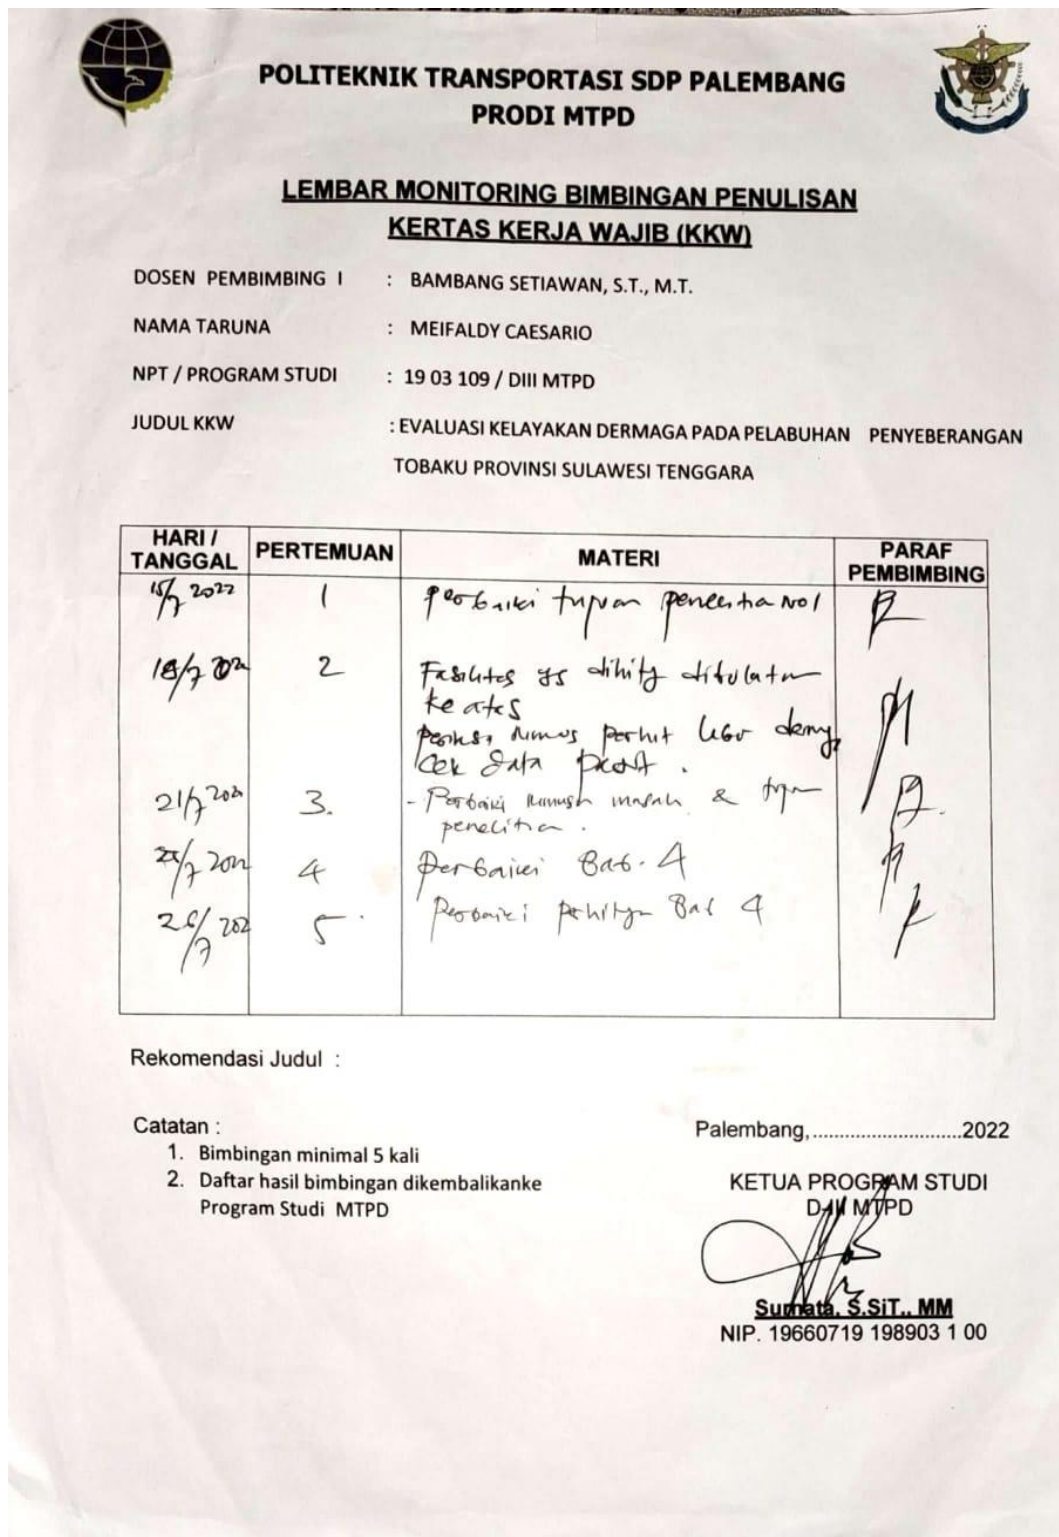 POLITEKNIK TRANSPORTASI SDP PALEMBANG
PRODI MTPD
LEMBAR MONITORING BIMBINGAN PENULISAN
KERTAS KERJA WAJIB (KKW)
DOSEN PEMBIMBING I : BAMBANG SETIAWAN, S.T., M.T.
NAMA TARUNA : MEIFALDY CAESARIO
NPT / PROGRAM STUDI : 19 03 109 / DIII MTPD
JUDUL KKW : EVALUASI KELAYAKAN DERMAGA PADA PELABUHAN PENYEBERANGAN
TOBAKU PROVINSI SULAWESI TENGGARA
HARI / TANGGAL PERTEMUAN MATERI PARAF PEMBIMBING
15/7 2022 1 Perbaiki tujuan penelitia No 1
18/7 2 Fasilitas yg dihity
ke atas
perhit
Cek data
21/7 3. - Perbaiki masah &
penelitia.
4 Perbaiki Bab. 4
26/7 202 5 Perbaiki Bab 4
Rekomendasi Judul :
Catatan :
1. Bimbingan minimal 5 kali
2. Daftar hasil bimbingan dikembalikanke
Program Studi MTPD
Palembang,...........................2022
KETUA PROGRAM STUDI
MTPD
Sumata, S.SiT., MM
NIP. 19660719 198903 1 00